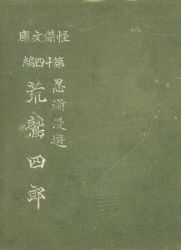 怪傑文庫
第十四編
忍術漫遊
荒鷲四郎